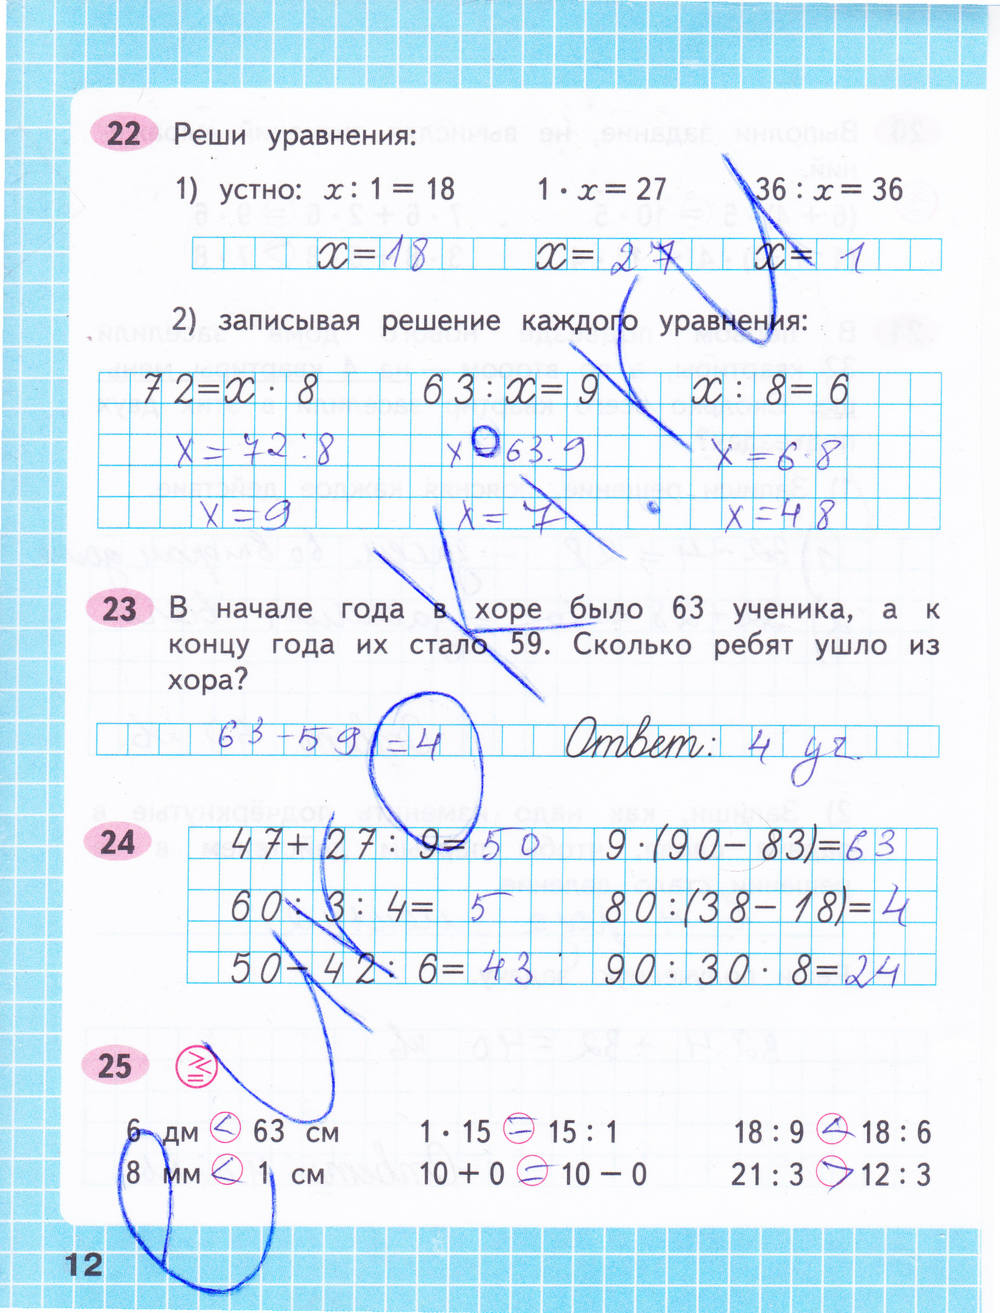 22 Реши уравнения:
1) устно: x : 1 = 18 1 · x = 27 36 : x = 36
x = 18 x = 27 x = 1
2) записывая решение каждого уравнения:
72 = x · 8 63 : x = 9 x : 8 = 6
x = 72 : 8 x = 63 : 9 x = 6 · 8
x = 9 x = 7 x = 48
23 В начале года в хоре было 63 ученика, а к
концу года их стало 59. Сколько ребят ушло из
хора?
63 - 59 = 4 Ответ: 4 уч.
24 47 + 27 : 9 = 50 9 · (90 - 83) = 63
60 : 3 : 4 = 5 80 : (38 - 18) = 4
50 - 42 : 6 = 43 90 : 30 · 8 = 24
25 > < =
6 дм < 63 см 1 · 15 = 15 : 1 18 : 9 < 18 : 6
8 мм < 1 см 10 + 0 = 10 − 0 21 : 3 > 12 : 3
12